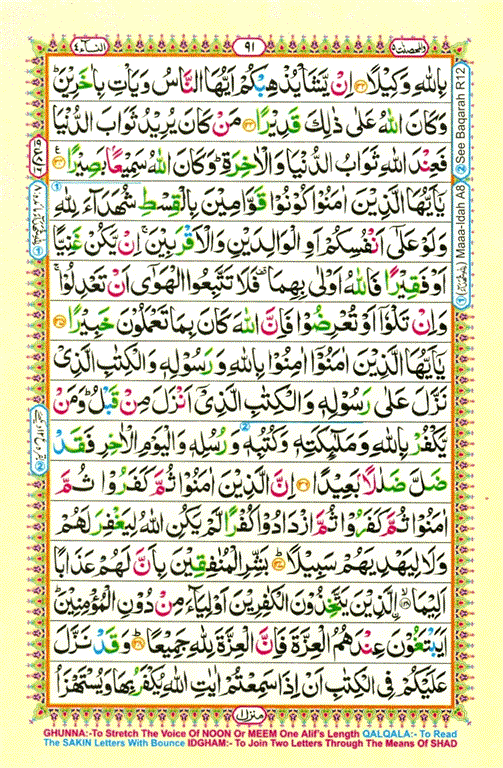 النسآء ٤
٩١
والمحصنت ٥
بِاللّٰهِ وَكِيْلًا ﴿١٣٢﴾ اِنْ يَّشَاْ يُذْهِبْكُمْ اَيُّهَا النَّاسُ وَيَاْتِ بِاٰخَرِيْنَ ؕ
وَكَانَ اللّٰهُ عَلٰى ذٰلِكَ قَدِيْرًا ﴿١٣٣﴾ مَنْ كَانَ يُرِيْدُ ثَوَابَ الدُّنْيَا
فَعِنْدَ اللّٰهِ ثَوَابُ الدُّنْيَا وَالْاٰخِرَةِ ؕ وَكَانَ اللّٰهُ سَمِيْعًۢا بَصِيْرًا ﴿١٣٤﴾
يٰۤاَيُّهَا الَّذِيْنَ اٰمَنُوْا كُوْنُوْا قَوّٰمِيْنَ بِالْقِسْطِ شُهَدَآءَ لِلّٰهِ
وَلَوْ عَلٰۤى اَنْفُسِكُمْ اَوِ الْوَالِدَيْنِ وَالْاَقْرَبِيْنَ ۚ اِنْ يَّكُنْ غَنِيًّا
اَوْ فَقِيْرًا فَاللّٰهُ اَوْلٰى بِهِمَا ۫ فَلَا تَتَّبِعُوا الْهَوٰۤى اَنْ تَعْدِلُوْا ۚ
وَاِنْ تَلْوٗۤا اَوْ تُعْرِضُوْا فَاِنَّ اللّٰهَ كَانَ بِمَا تَعْمَلُوْنَ خَبِيْرًا ﴿١٣٥﴾
يٰۤاَيُّهَا الَّذِيْنَ اٰمَنُوْۤا اٰمِنُوْا بِاللّٰهِ وَرَسُوْلِهٖ وَالْكِتٰبِ الَّذِيْ
نَزَّلَ عَلٰى رَسُوْلِهٖ وَالْكِتٰبِ الَّذِيْۤ اَنْزَلَ مِنْ قَبْلُ ؕ وَمَنْ
يَّكْفُرْ بِاللّٰهِ وَمَلٰٓئِكَتِهٖ وَكُتُبِهٖ وَرُسُلِهٖ وَالْيَوْمِ الْاٰخِرِ فَقَدْ
ضَلَّ ضَلٰلًۢا بَعِيْدًا ﴿١٣٦﴾ اِنَّ الَّذِيْنَ اٰمَنُوْا ثُمَّ كَفَرُوْا ثُمَّ
اٰمَنُوْا ثُمَّ كَفَرُوْا ثُمَّ ازْدَادُوْا كُفْرًا لَّمْ يَكُنِ اللّٰهُ لِيَغْفِرَ لَهُمْ
وَلَا لِيَهْدِيَهُمْ سَبِيْلًا ﴿١٣٧﴾ بَشِّرِ الْمُنٰفِقِيْنَ بِاَنَّ لَهُمْ عَذَابًا
اَلِيْمًا ﴿١٣٨﴾ الَّذِيْنَ يَتَّخِذُوْنَ الْكٰفِرِيْنَ اَوْلِيَآءَ مِنْ دُوْنِ الْمُؤْمِنِيْنَ ؕ
اَيَبْتَغُوْنَ عِنْدَهُمُ الْعِزَّةَ فَاِنَّ الْعِزَّةَ لِلّٰهِ جَمِيْعًا ﴿١٣٩﴾ وَقَدْ نَزَّلَ
عَلَيْكُمْ فِي الْكِتٰبِ اَنْ اِذَا سَمِعْتُمْ اٰيٰتِ اللّٰهِ يُكْفَرُ بِهَا وَيُسْتَهْزَاُ
② See Baqarah R12
① Maaa-Idah A8
منزل ١
GHUNNA:-To Stretch The Voice Of NOON Or MEEM One Alif's Length QALQALA:- To Read
The SAKIN Letters With Bounce IDGHAM:- To Join Two Letters Through The Means Of SHAD